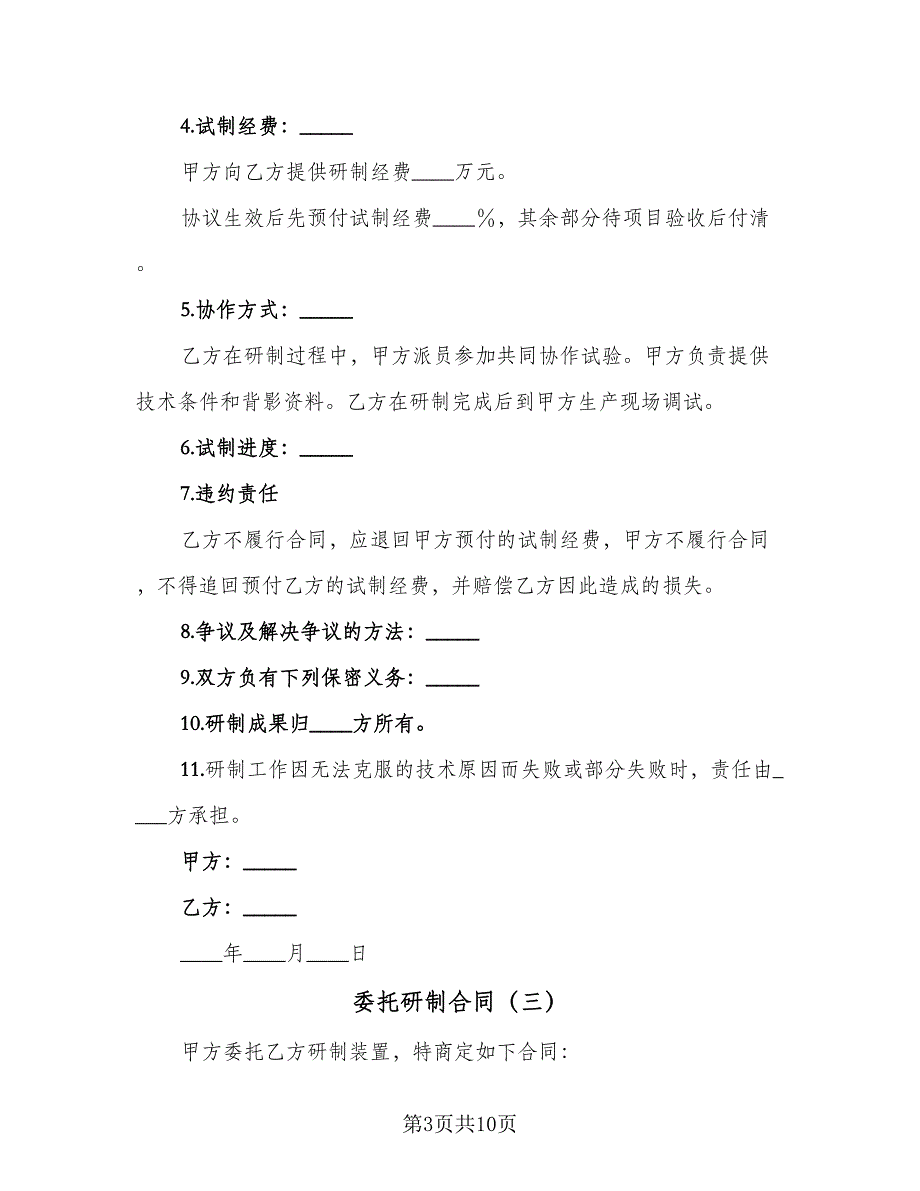 4.试制经费：_____
甲方向乙方提供研制经费____万元。
协议生效后先预付试制经费____%，其余部分待项目验收后付清
。
5.协作方式：_____
乙方在研制过程中，甲方派员参加共同协作试验。甲方负责提供
技术条件和背影资料。乙方在研制完成后到甲方生产现场调试。
6.试制进度：_____
7.违约责任
乙方不履行合同，应退回甲方预付的试制经费，甲方不履行合同
，不得追回预付乙方的试制经费，并赔偿乙方因此造成的损失。
8.争议及解决争议的方法：_____
9.双方负有下列保密义务：_____
10.研制成果归____方所有。
11.研制工作因无法克服的技术原因而失败或部分失败时，责任由_
___方承担。
甲方：_____
乙方：_____
____年____月____日
委托研制合同（三）
甲方委托乙方研制装置，特商定如下合同：
第3页共10页